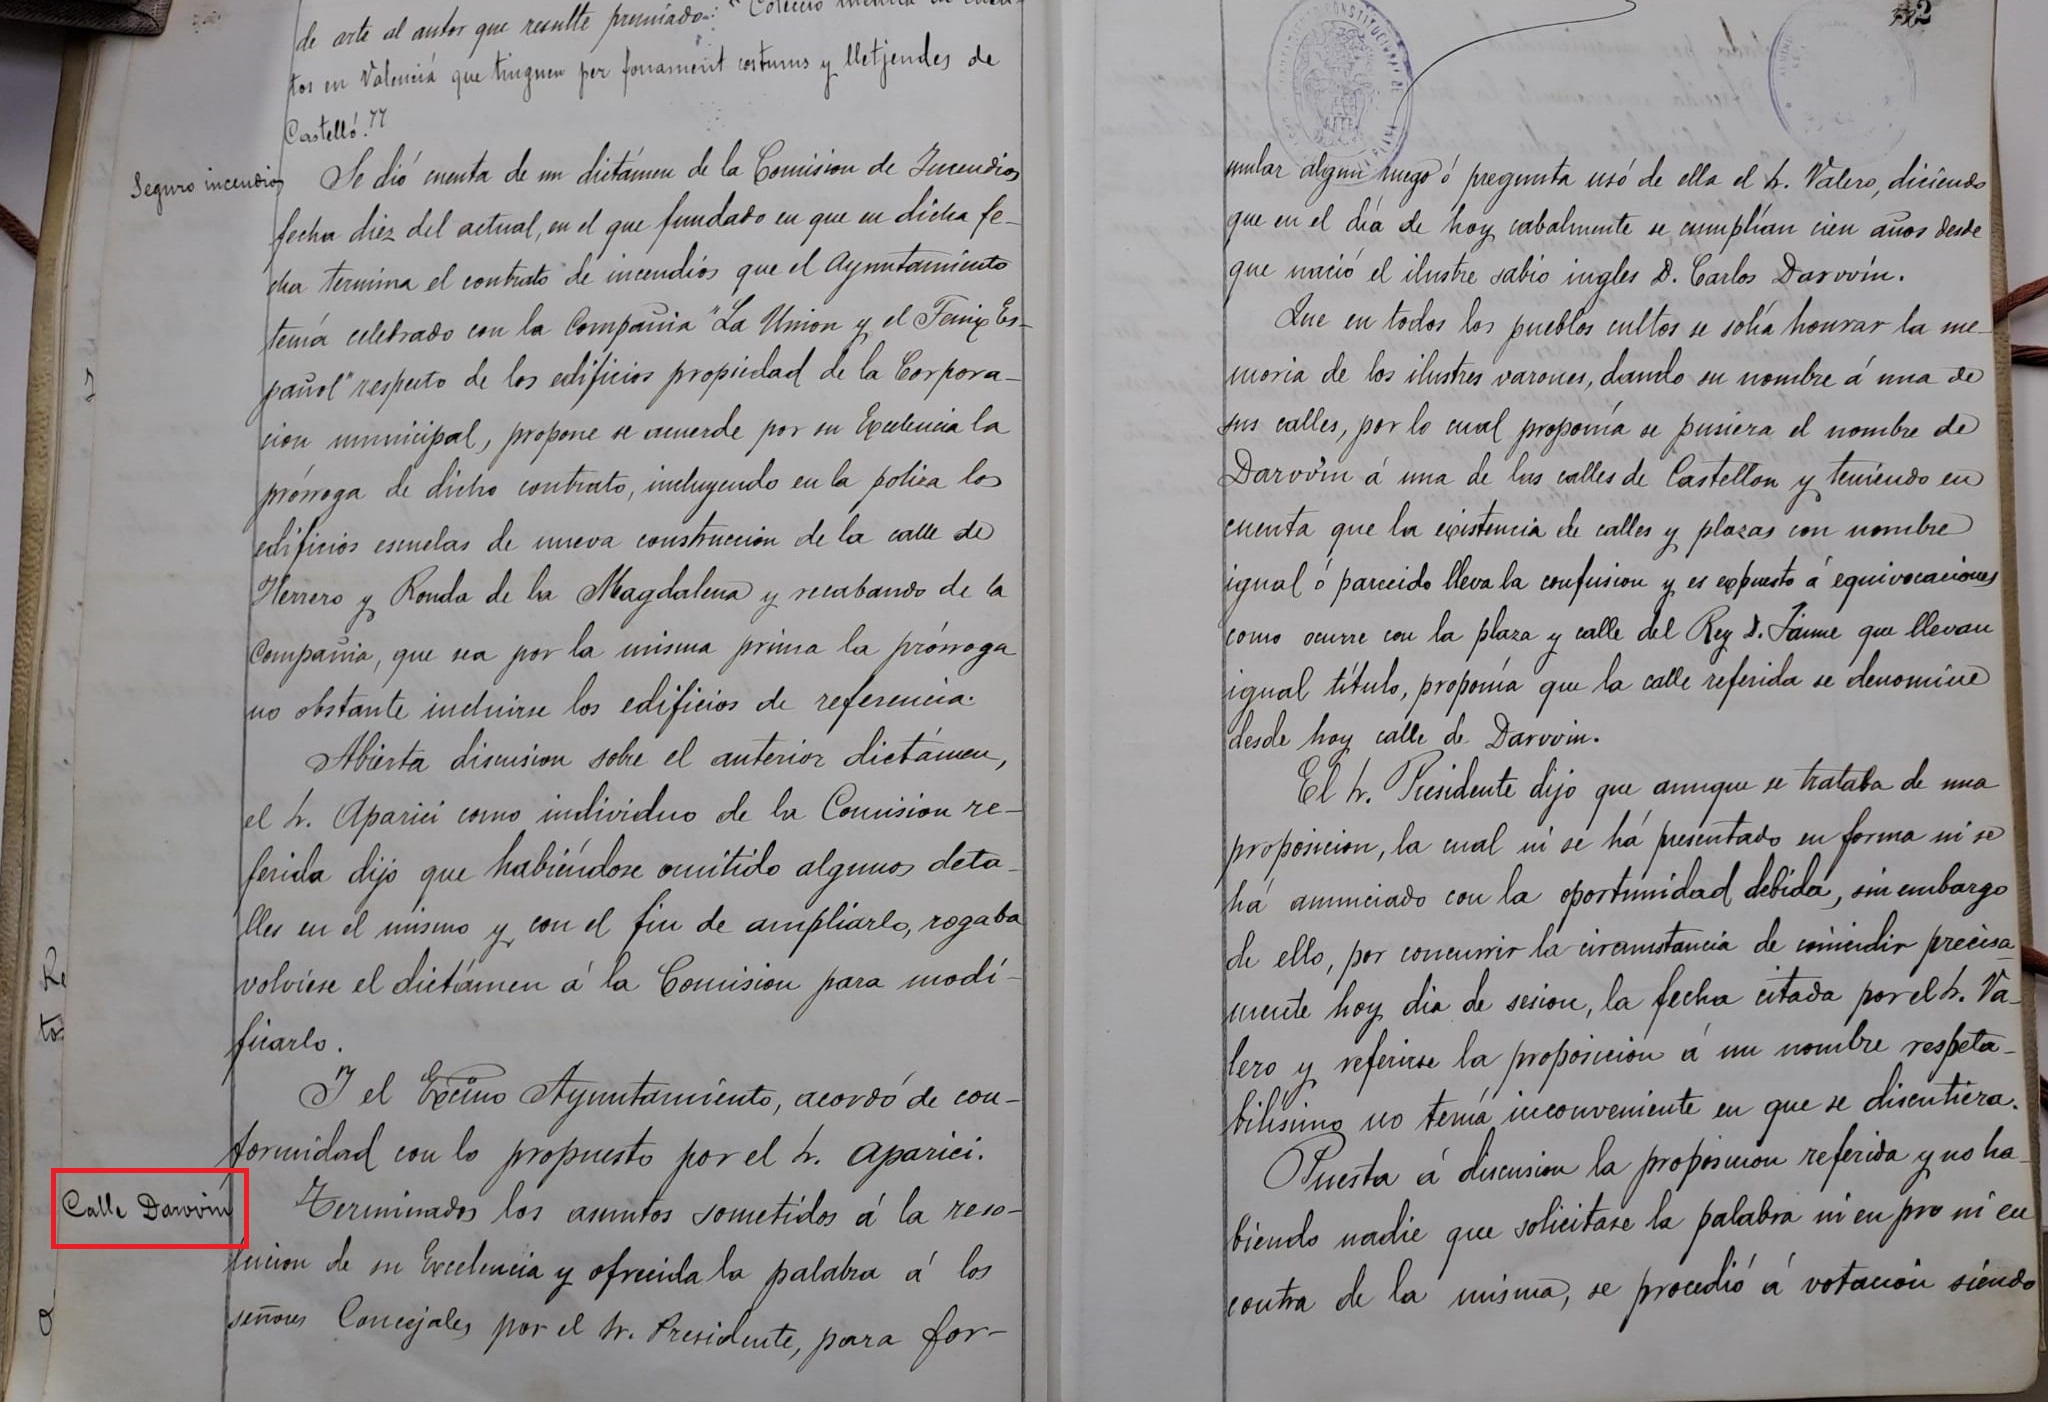 de arte al autor que resulte premiado: "Colecció inédita de cuen-
tos en Valenciá que tinguen per fonament costums y lletjendes de
Castelló."
Seguro incendios
Se dió cuenta de un dictámen de la Comision de Incendios
fecha diez del actual, en el que fundado en que en dicha fe-
cha termina el contrato de incendios que el Ayuntamiento
tenía celebrado con la Compañia "La Union y el Fenix Es-
pañol" respecto de los edificios propiedad de la Corpora-
cion municipal, propone se acuerde por su Excelencia la
prórroga de dicho contrato, incluyendo en la poliza los
edificios escuelas de nueva construccion de la calle de
Herrero y Ronda de la Magdalena y recabando de la
Compañia, que sea por la misma prima la prórroga
no obstante incluirse los edificios de referencia.
Abierta discusion sobre el anterior dictámen,
el Sr. Aparici como individuo de la Comision re-
ferida dijo que habiéndose omitido algunos deta-
lles en el mismo y con el fin de ampliarlo, rogaba
volviese el dictámen á la Comision para modi-
ficarlo.
Y el Excmo Ayuntamiento, acordó de con-
formidad con lo propuesto por el Sr. Aparici.
Calle Darvvin
Terminados los asuntos sometidos á la reso-
lucion de su Excelencia y ofrecida la palabra á los
señores Concejales por el Sr. Presidente, para for-
Re
to
2
mular algun ruego ó pregunta usó de ella el Sr. Valero, diciendo
que en el día de hoy cabalmente se cumplían cien años desde
que nació el ilustre sabio ingles D. Carlos Darvvin.
Que en todos los pueblos cultos se solía honrar la me-
moria de los ilustres varones, dando su nombre á una de
sus calles, por lo cual proponía se pusiera el nombre de
Darvvin á una de las calles de Castellon y teniendo en
cuenta que la existencia de calles y plazas con nombre
igual ó parecido lleva la confusion y es expuesto á equivocaciones
como ocurre con la plaza y calle del Rey D. Jaime que llevan
igual título, proponía que la calle referida se denomine
desde hoy calle de Darvvin.
El Sr. Presidente dijo que aunque se trataba de una
proposicion, la cual ni se há presentado en forma ni se
há anunciado con la oportunidad debida, sin embargo
de ello, por concurrir la circunstancia de coincidir precisa-
mente hoy dia de sesion, la fecha citada por el Sr. Va-
lero y referirse la proposicion á un nombre respeta-
bilísimo no tenía inconveniente en que se discutiera.
Puesta á discusion la proposicion referida y no ha-
biendo nadie que solicitase la palabra ni en pro ni en
contra de la misma, se procedió á votacion siendo